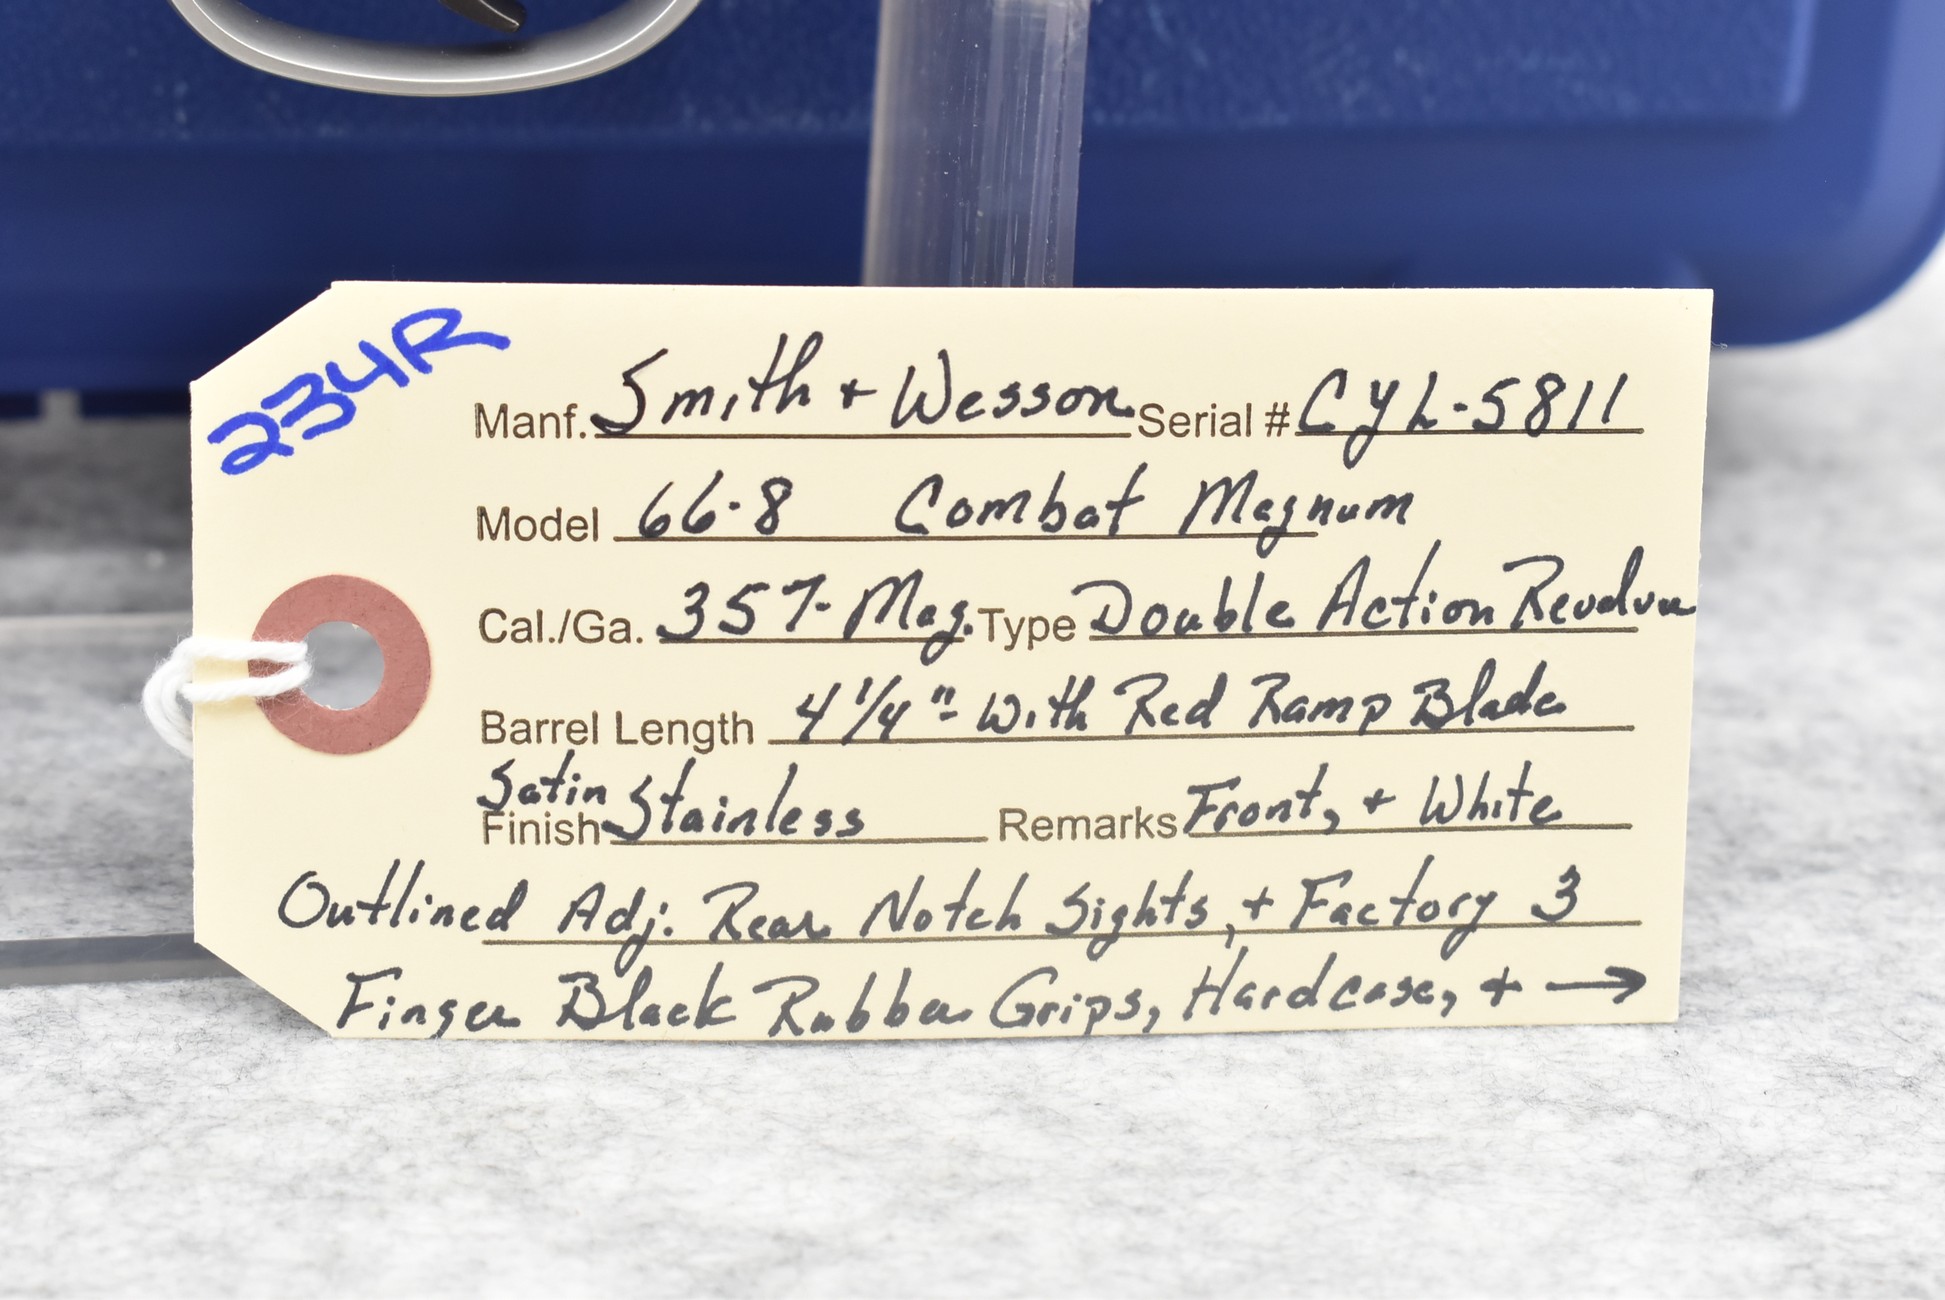 234R
Manf. Smith + Wesson Serial # CYL-5811
Model 66-8 Combat Magnum
Cal./Ga. 357- Mag. Type Double Action Revolver
Barrel Length 4 1/4"- With Red Ramp Blade
Satin
Finish Stainless Remarks Front, + White
Outlined Adj. Rear Notch Sights, + Factory 3
Finger Black Rubber Grips, Hardcase, + →